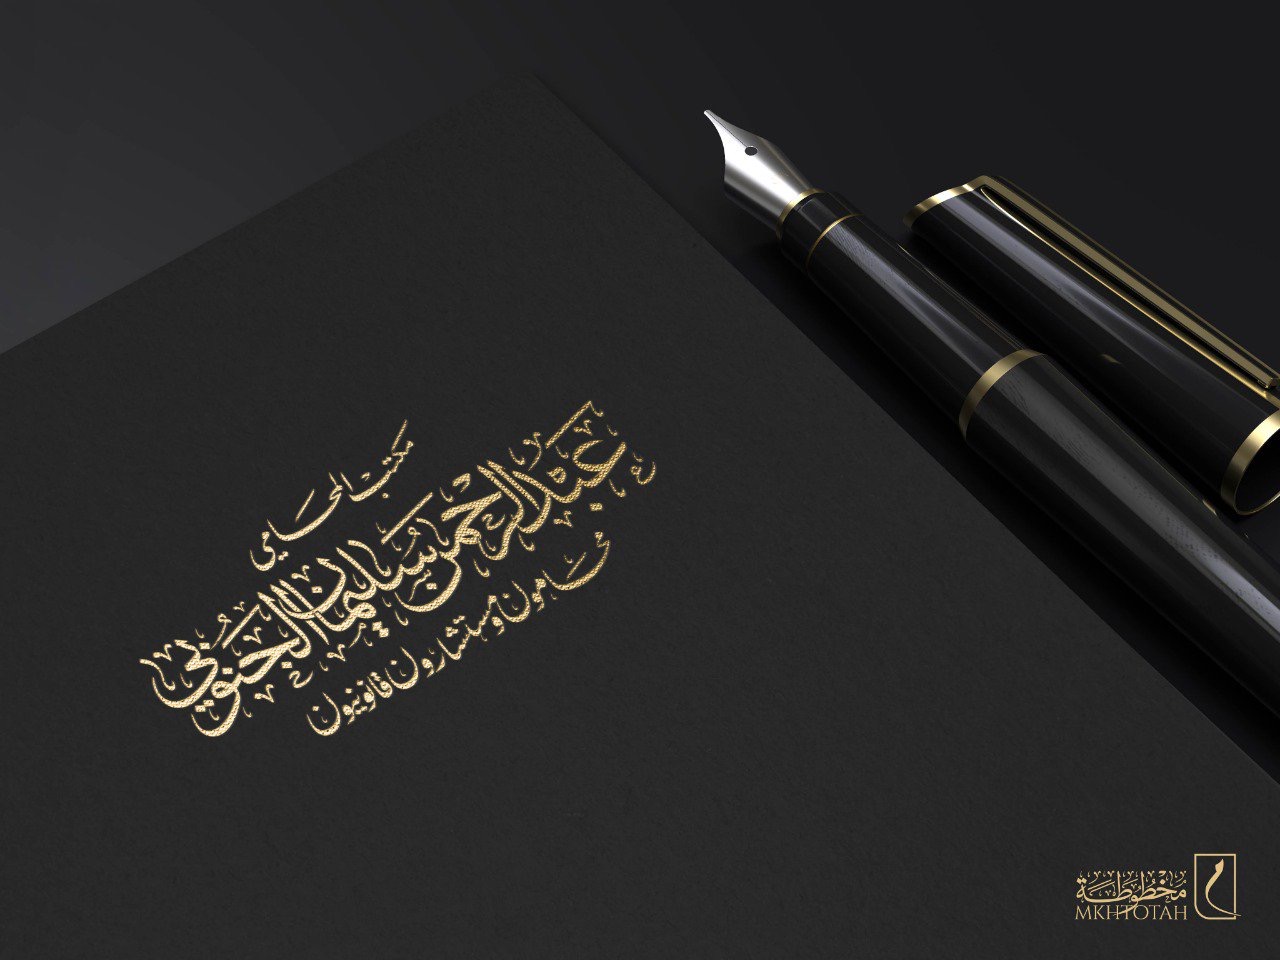 مكتب المحامي
عبدالرحمن سليمان الجنوبي
محامون ومستشارون قانونيون
مخطوطة
MKHTOTAH